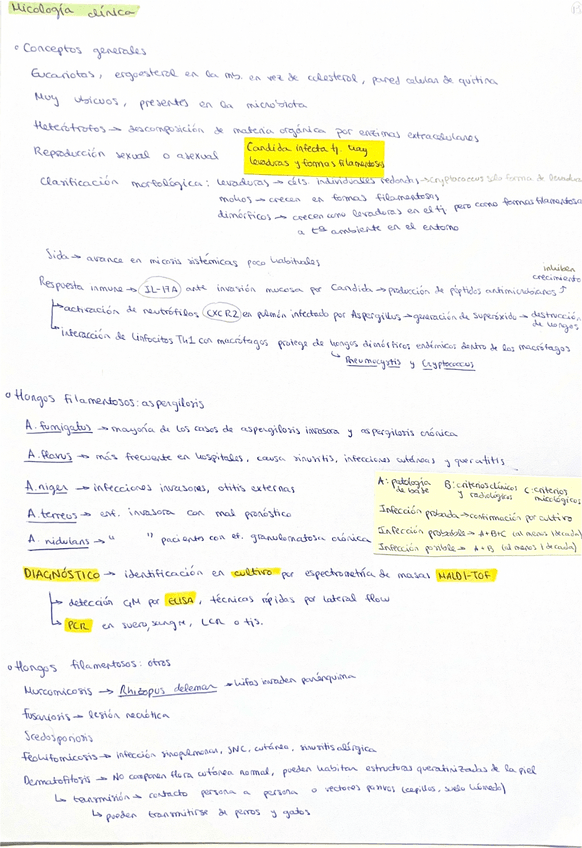 Micología clínica
◦ Conceptos generales
Eucariotas, ergoesterol en la mb. en vez de colesterol, pared celular de quitina
Muy ubicuos, presentes en la microbiota
Heterótrofos → descomposición de materia orgánica por enzimas extracelulares
Reproducción sexual o asexual
Candida infecta tj. hay
levaduras y formas filamentosas
Clasificación morfológica: levaduras → céls. individuales redondas → Cryptococcus solo forma de levadura
mohos → crecen en formas filamentosas
dimórficos → crecen como levaduras en el tj pero como formas filamentosas
a tª ambiente en el entorno
Sida → avance en micosis sistémicas poco habituales
Respuesta inmune → IL-17A ante invasión mucosa por Candida → producción de péptidos antimicrobianos
inhiben
crecimiento
↳ activación de neutrófilos CXCR2 en pulmón infectado por Aspergillus → generación de superóxido → destrucción
de hongos
↳ interacción de linfocitos TH1 con macrófagos protege de hongos dimórficos endémicos dentro de los macrófagos
↳ Pneumocystis y Cryptococcus
◦ Hongos filamentosos: aspergilosis
A. fumigatus → mayoría de los casos de aspergilosis invasora y aspergilosis crónica
A. flavus → más frecuente en hospitales, causa sinusitis, infecciones cutáneas y queratitis
A. niger → infecciones invasoras, otitis externas
A. terreus → enf. invasora con mal pronóstico
A. nidulans → " " paciente con ef. granulomatosa crónica
A: patología
de base
B: criterios clínicos
y radiológicos
C: criterios
micológicos
Infección probada → confirmación por cultivo
Infección probable → A+B+C (al menos 1 de cada)
Infección posible → A+B (al menos 1 de cada)
DIAGNÓSTICO → identificación en cultivo por espectrometría de masas MALDI-TOF
↳ detección GM por ELISA, técnicas rápidas por lateral flow
↳ PCR en suero, sangre, LCR o tjs.
◦ Hongos filamentosos: otros
Murcomicosis → Rhizopus delemar → hifas invaden parénquima
Fusariosis → lesión necrótica
Scedosporiosis
Feohifomicosis → infección sinopulmonar, SNC, cutánea, sinusitis alérgica
Dermatofitosis → No componen flora cutánea normal, pueden habitar estructuras queratinizadas de la piel
↳ transmisión → contacto persona a persona o vectores pasivos (cepillos, suelo húmedo)
↳ pueden transmitirse de perros y gatos